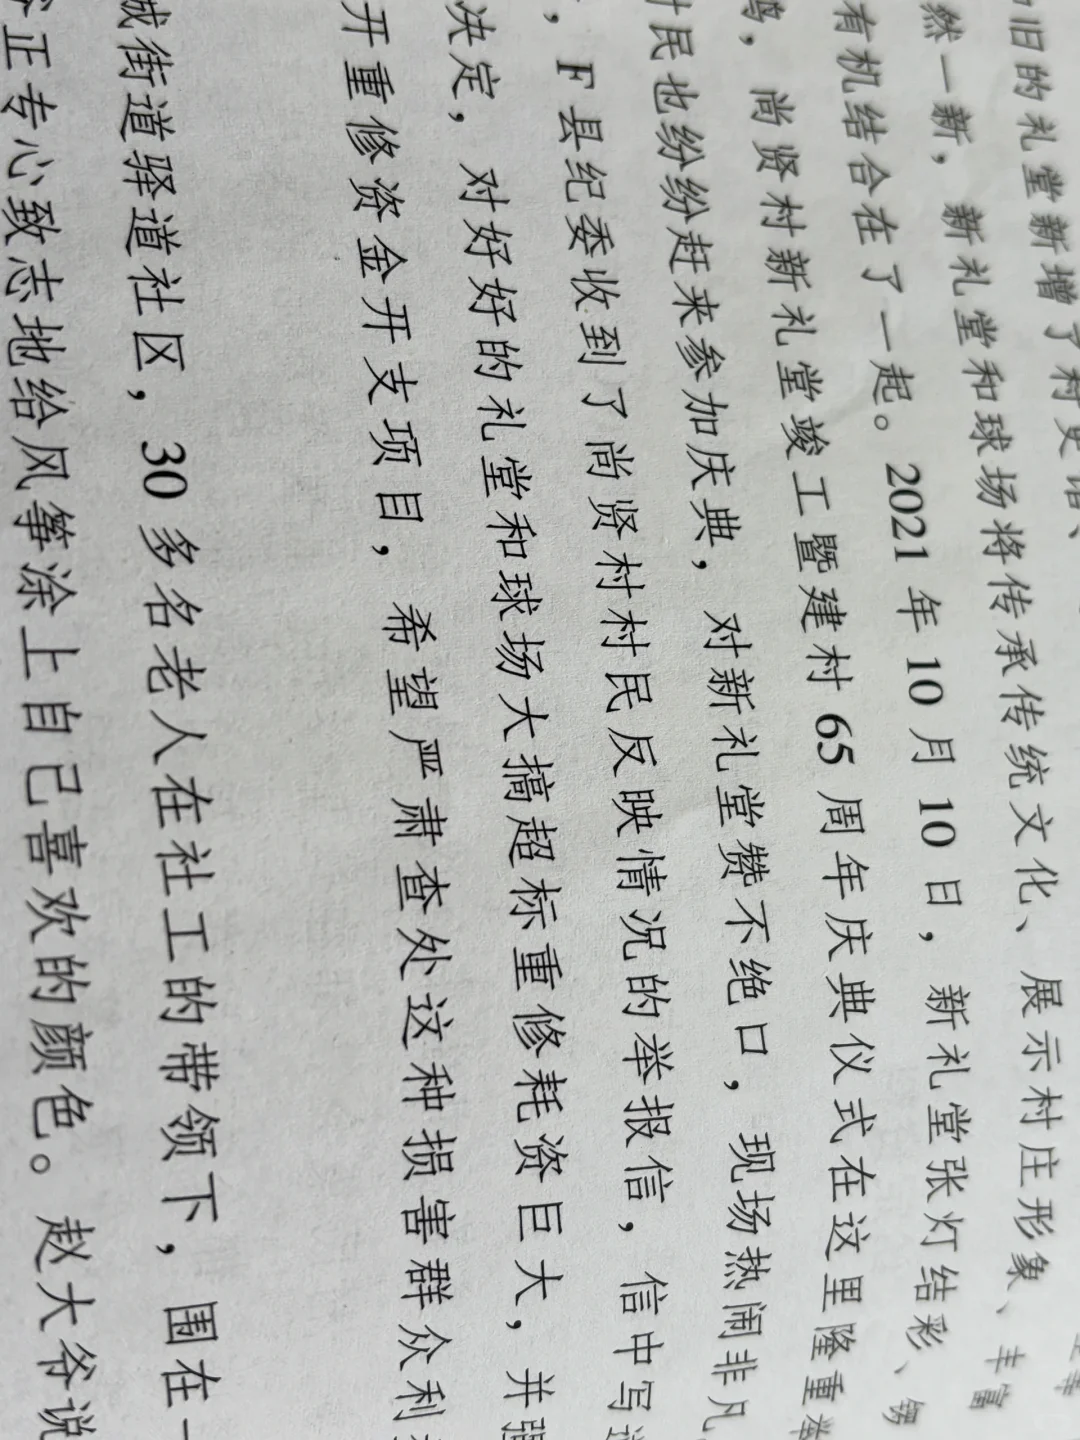 旧的礼堂新增了村史
然一新，新礼堂和球场将传承传统文化、展示村庄形象、丰富
有机结合在了一起。2021 年 10 月 10 日，新礼堂张灯结彩、锣
尚贤村新礼堂竣工暨建村 65 周年庆典仪式在这里隆重举
村民也纷纷赶来参加庆典，对新礼堂赞不绝口，现场热闹非凡
，F 县纪委收到了尚贤村村民反映情况的举报信，信中写道
决定，对好好的礼堂和球场大搞超标重修耗资巨大，并强
开重修资金开支项目，希望严肃查处这种损害群众利
城街道驿道社区，30 多名老人在社工的带领下，围在一
正专心致志地给风筝涂上自己喜欢的颜色。赵大爷说